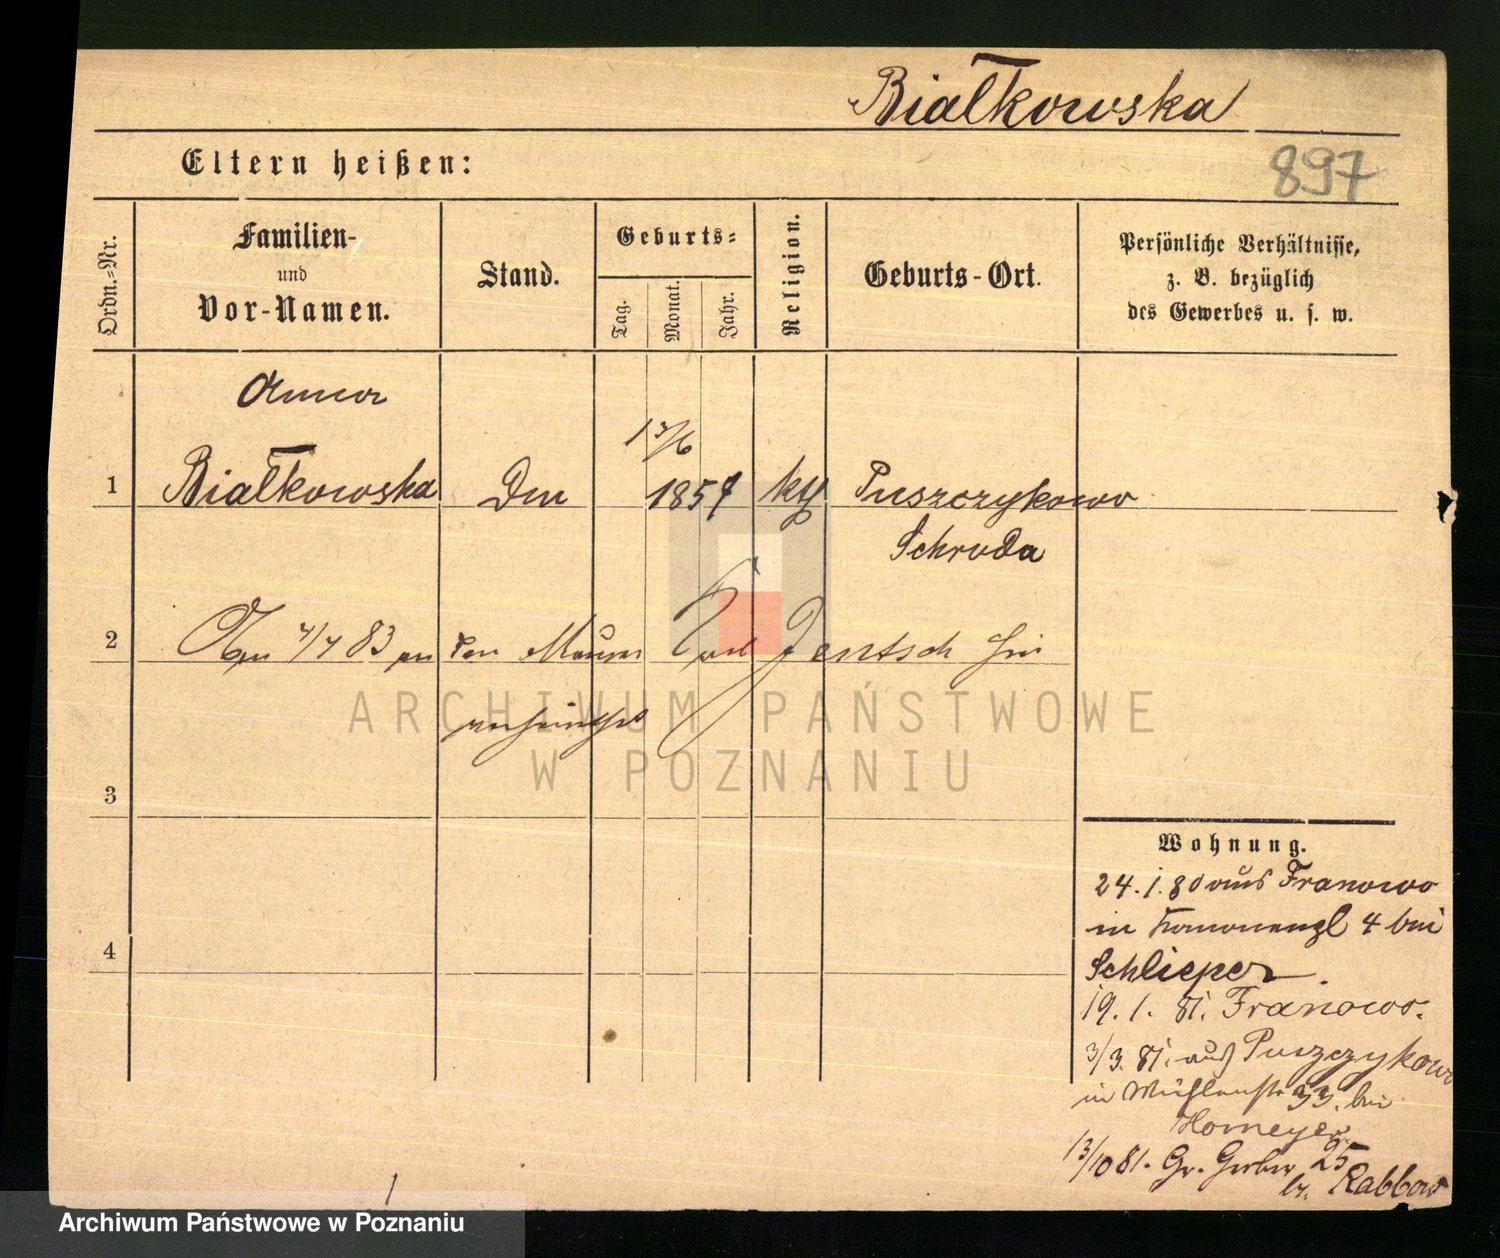 Białkowska
Eltern heißen:
897
Ordn.-Nr.
Familien-
und
Vor-Namen.
Stand.
Geburts-
Tag.
Monat.
Jahr.
Religion.
Geburts-Ort.
Persönliche Verhältnisse,
z. B. bezüglich
des Gewerbes u. s. w.
Anna
13/6
1 Białkowska 185 Puszczykowo
Schroda
2 83 den Maurer Jentsch hier
verheirathet
3
4
Wohnung.
24.1.80 aus Franowo
in 4 bei
Schlieper.
19.1.81. Franowo.
3/3.81. aus Puszczykowo
in Mühlenstr 33. bei
Homeyer
13/10 81. Gr. Gerber 25
b. Rabbow
1
ARCHIWUM PAŃSTWOWE
W POZNANIU
Archiwum Państwowe w Poznaniu